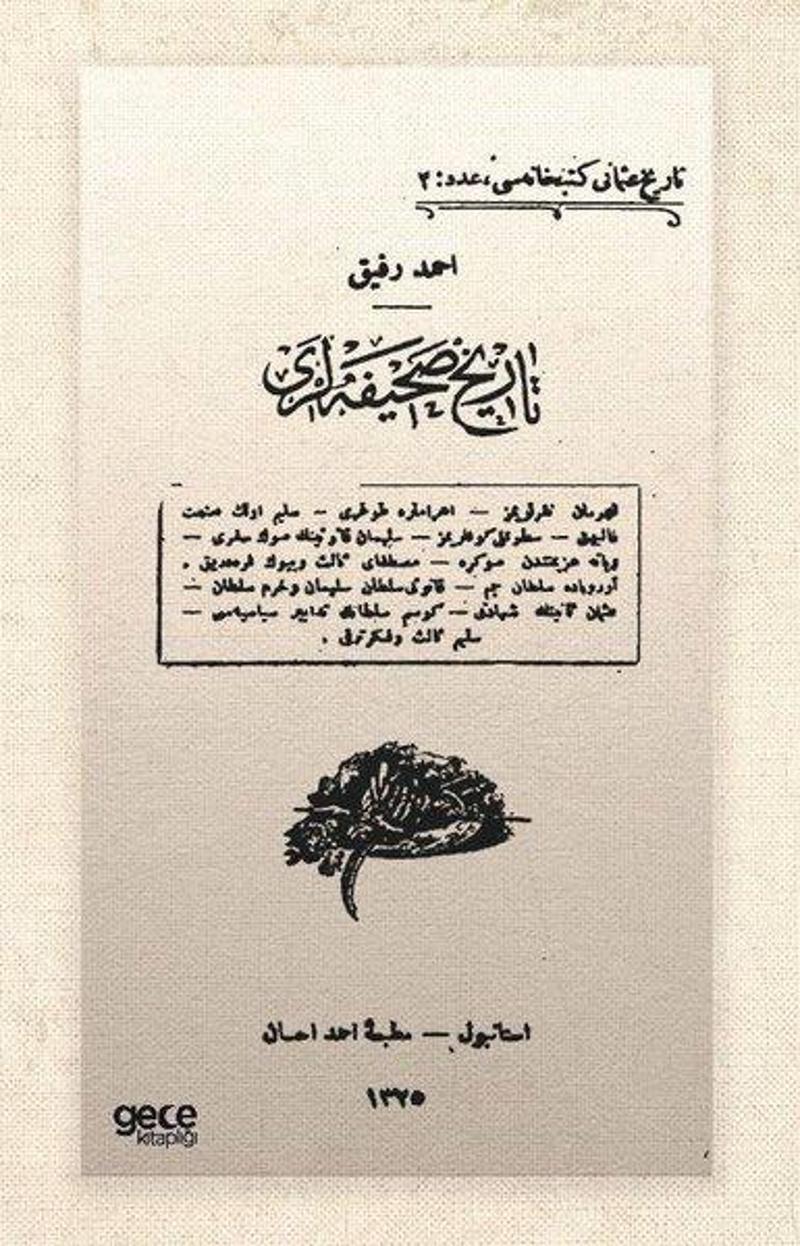 تاریخ عثمانی کتبخانه‌سی، عدد: ۴
احمد رفیق
تاریخ صحیفه‌لری
قهرمان نفرلریمز — اهراملره طوغری — سلیم اولك
— سلیمان قانونینك صوك سفری —
ویانه هزیمتندن صوکره — مصطفای ثالث وبیوك فره‌دریق .
آوروپاده سلطان جم — قانونی سلطان سلیمان وخرم سلطان —
عثمان ثانینك شهادتی — کوسم سلطانك تدابیر سیاسیه‌سی —
سلیم ثالث
استانبول — مطبعهٔ احمد احسان
۱۳۲۵
gece
kitaplığı